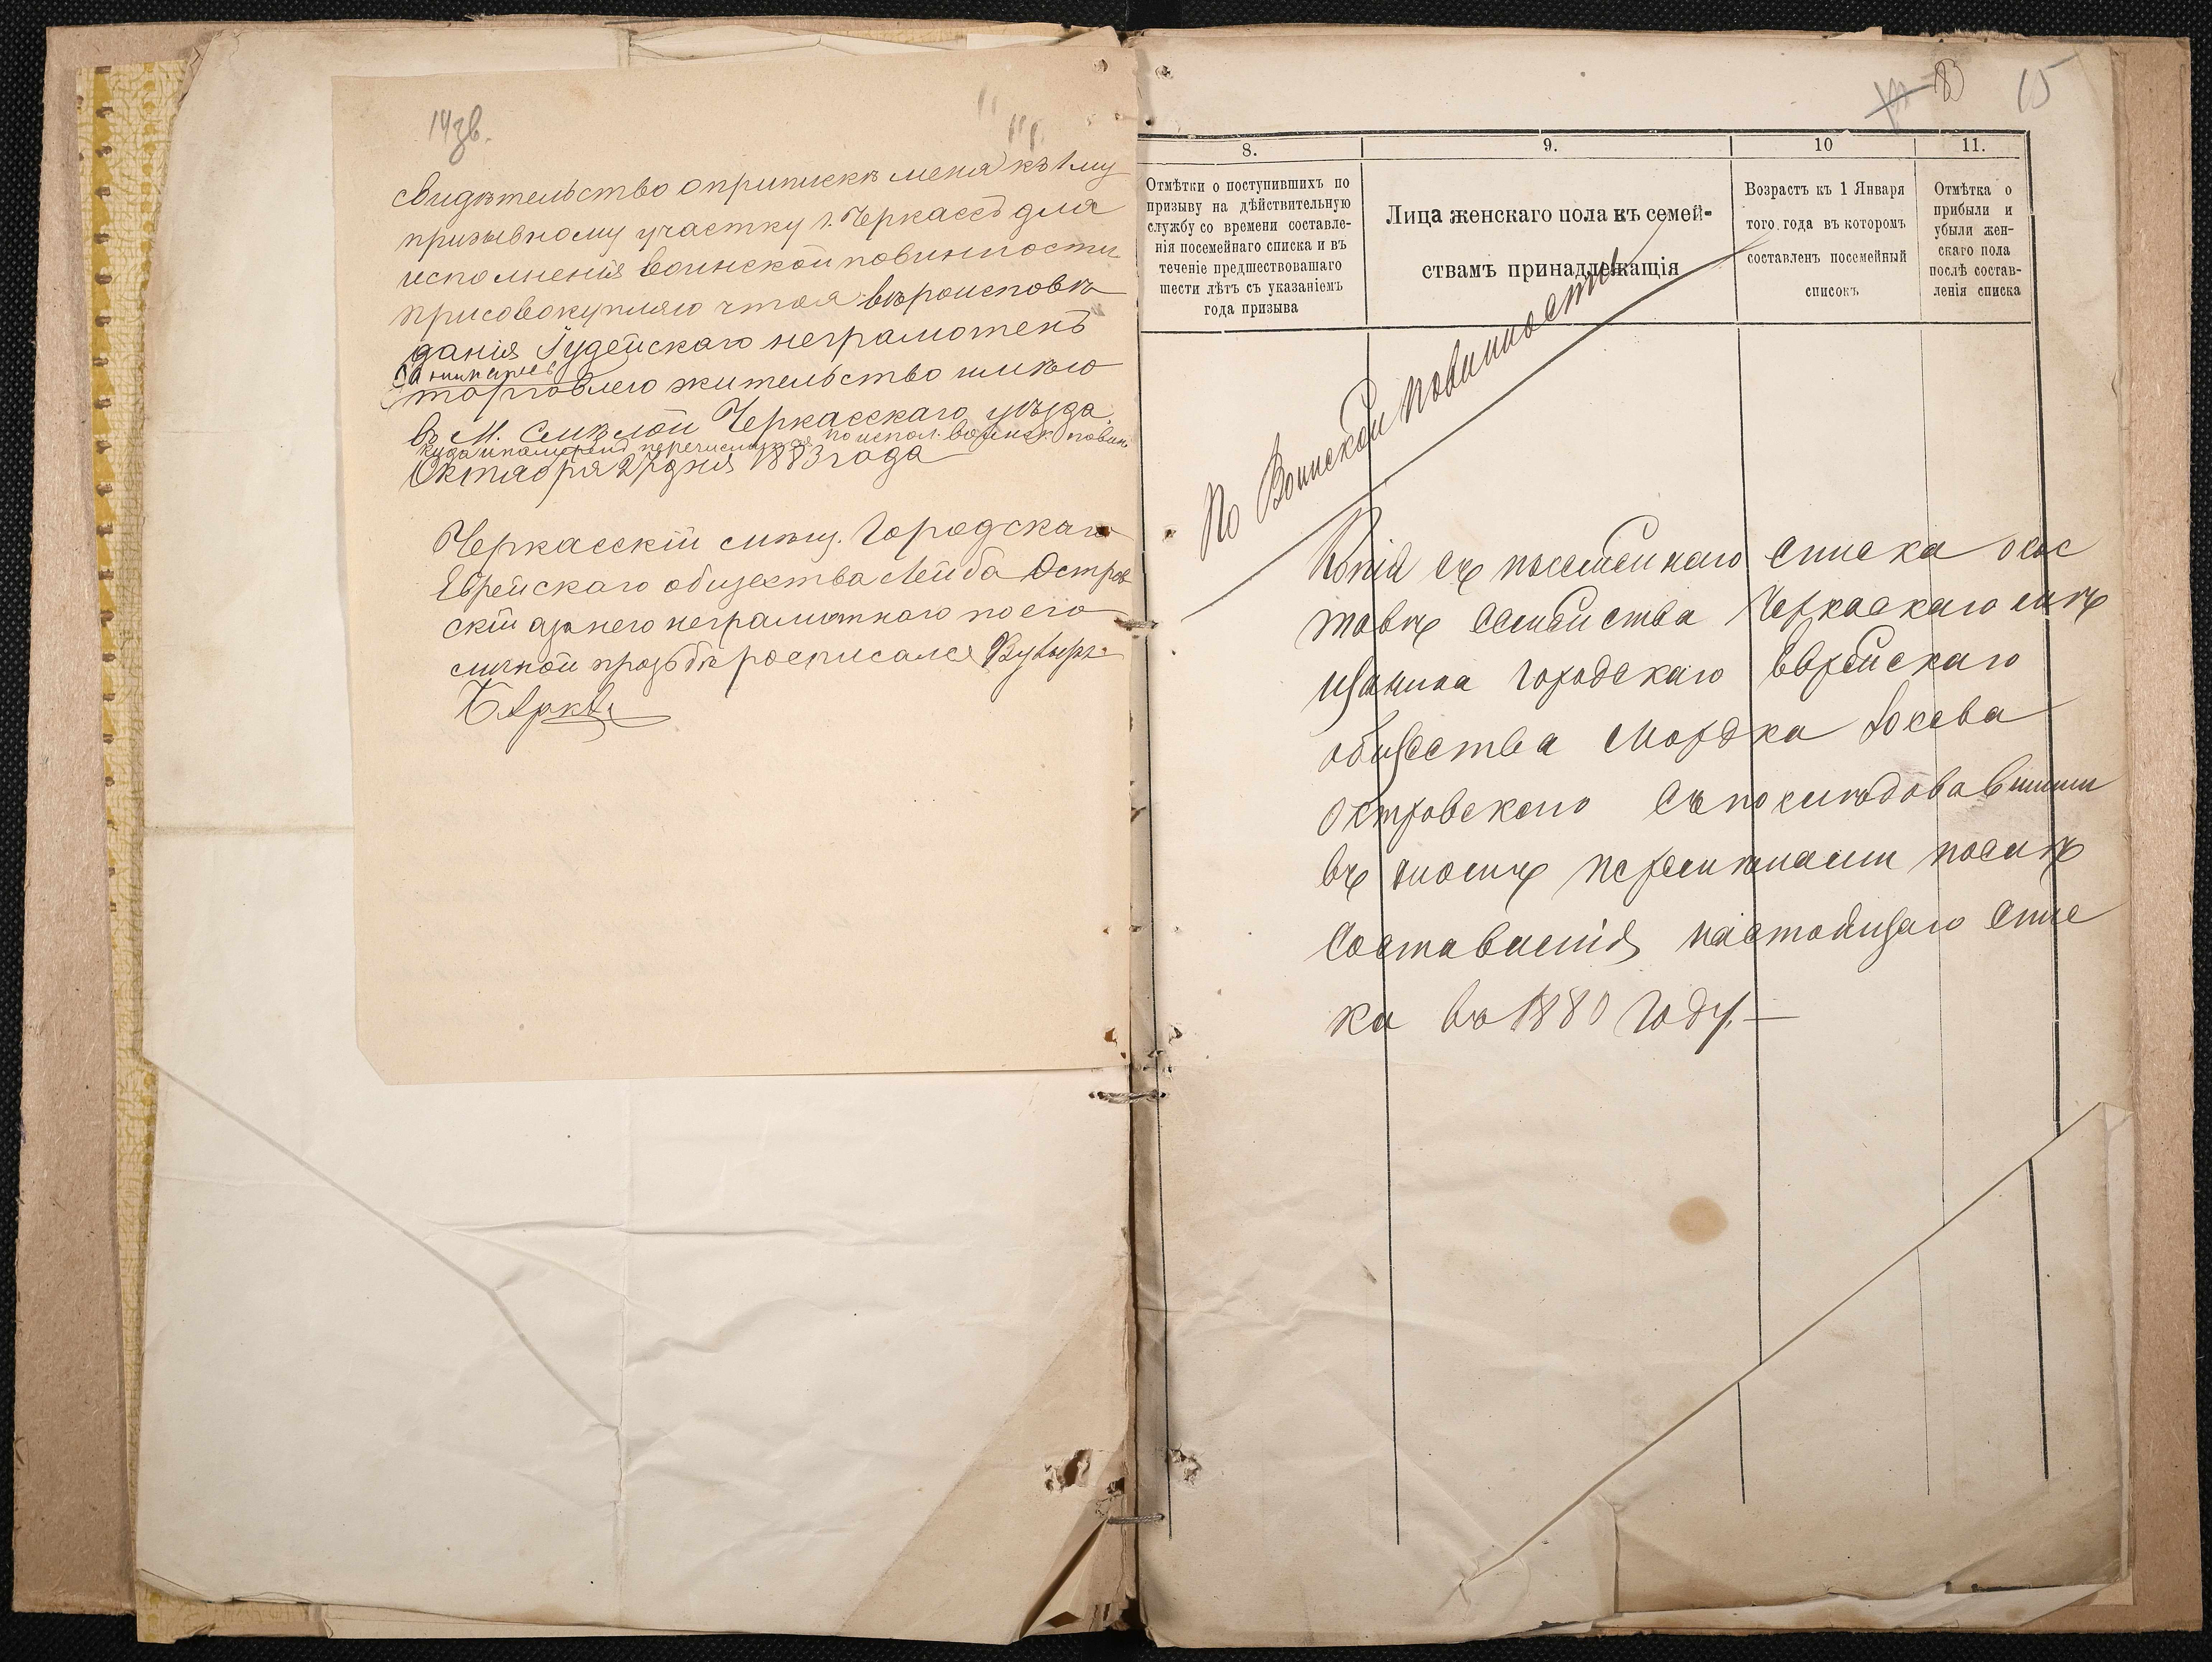 14 зв.
свидѣтельство о припискѣ меня къ 1му
призывному участку г. Черкассъ для
исполненія воинской повинности
присовокупляю что я вѣроисповѣ
данія Іудейскаго неграмотенъ
занимаюсь
торговлею жительство имѣю
въ М. Смѣлой Черкасскаго уѣзда
куда и перечисляюсь по испол. воинск. повин.
Октября 27 дня 1883 года
Черкасскій мѣщ. Городскаго
Еврейскаго общества Лейба Остров
скій а за него неграмотнаго по его
личной прозьбѣ росписался
15
8.
9.
10
11.
Отмѣтки о поступившихъ по
призыву на дѣйствительную
службу со времени составле-
нія посемейнаго списка и въ
теченіе предшествовашаго
шести лѣтъ съ указаніемъ
года призыва
Лица женскаго пола къ семей-
ствамъ принадлежащія
Возрастъ къ 1 Января
того года въ которомъ
составленъ посемейный
списокъ
Отмѣтка о
прибыли и
убыли жен-
скаго пола
послѣ состав-
ленія списка
По Воинской повинности
Копія съ посемейнаго списка о сос
тавѣ семейства Черкаскаго мѣ
щанина городскаго Еврейскаго
общества Мордка Іосева
Островского съ послѣдовавшими
въ ономъ перемѣнами послѣ
составленія настоящаго спис
ка въ 1880 году.—